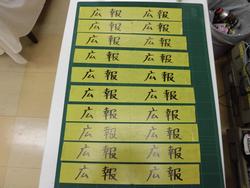 広報 広報
広報 広報
広報 広報
広報 広報
広報 広報
広報 広報
広報 広報
広報 広報
広報 広報